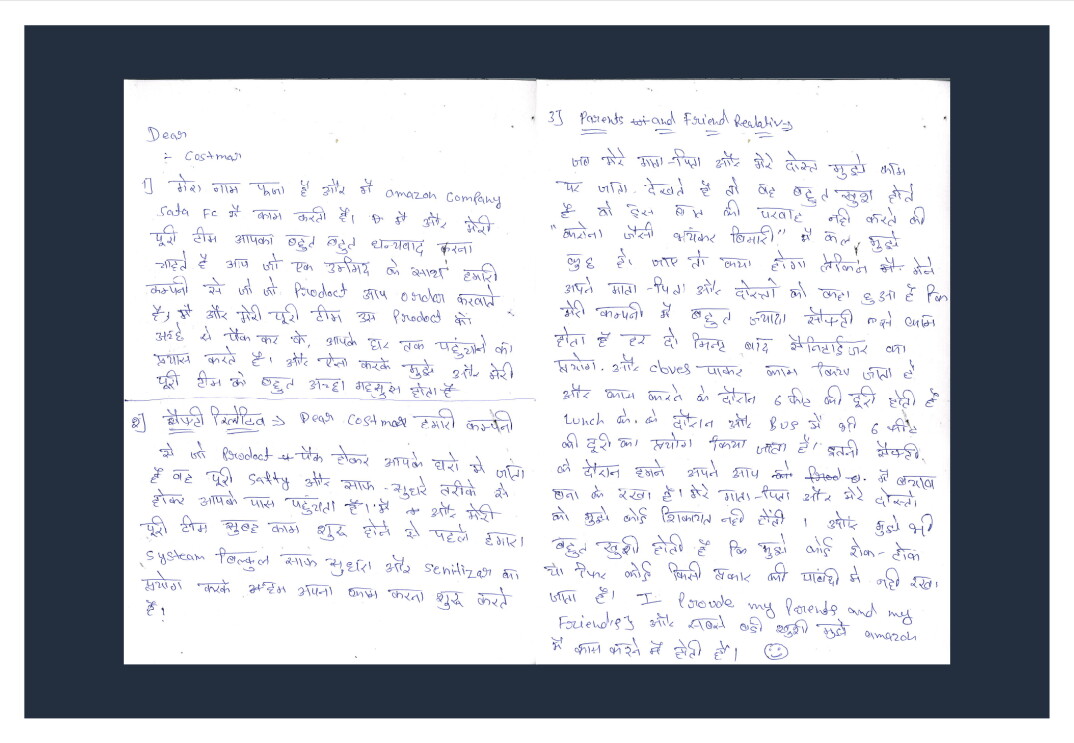 Dear
:- Costmar
1] मेरा नाम पूजा है और मैं amazon Company
Sada FC में काम करती हूँ। मैं और मेरी
पूरी टीम आपका बहुत बहुत धन्यबाद करना
चाहते है आप जो एक उम्मिद के साथ हमारी
कम्पनी से जो जो Product आप order करवाते
है, मैं और मेरी पूरी टीम उस Product को
अच्छे से पैक कर के, आपके घर तक पहुंचाने का
प्रयास करते है। और ऐसा करके मुझे और मेरी
पूरी टीम को बहुत अच्छा महसूस होता है
2] सैफ्टी रिलेटिव => Dear Costmar हमारी कम्पनी
से जो Product पैक होकर आपके घरो में जाता
है वह पूरी Safty और साफ-सुथरे तरीके से
होकर आपके पास पहुंचता है। मैं और मेरी
पूरी टीम सुबह काम शुरू होने से पहले हमारा
Systeam बिल्कुल साफ सुथरा और Senitizar का
प्रयोग करके हम अपना काम करना शुरू करते
है!
3] Parents and Friend Realative
जब मेरे माता-पिता और मेरे दोस्त मुझे काम
पर जाता देखते है तो वह बहुत खुश होते
है वो इस बात की परवाह नही करते की
"करोना जैसी भयंकर बिमारी" में कल मुझे
कुछ हो जाए तो क्या होगा लेकिन मैने
अपने माता-पिता और दोस्तो को कहा हुआ है कि
मेरी कम्पनी में बहुत ज्यादा सैफ्टी से काम
होता है हर दो मिनट बाद सैनिटाईजर का
प्रयोग. और cloves पाकर काम किया जाता है
और काम करते के दौरान 6 फीट की दूरी होती है
Lunch के. के दौरान और Bus में भी 6 फीट
की दूरी का प्रयोग किया जाता है। इतनी सैफ्टी
के दौरान हमने अपने आप में बचाव
बना के रखा है। मेरे माता-पिता और मेरे दोस्तो
को मुझे कोई शिकायत नही होती। और मुझे भी
बहुत खुशी होती है कि मुझे कोई रोक-टोक
या फिर कोई किसी प्रकार की पाबंदी में नही रखा
जाता है। I Provde my Perents and my
Friend's और सबसे बड़ी खुशी मुझे amazon
में काम करने में होती है।